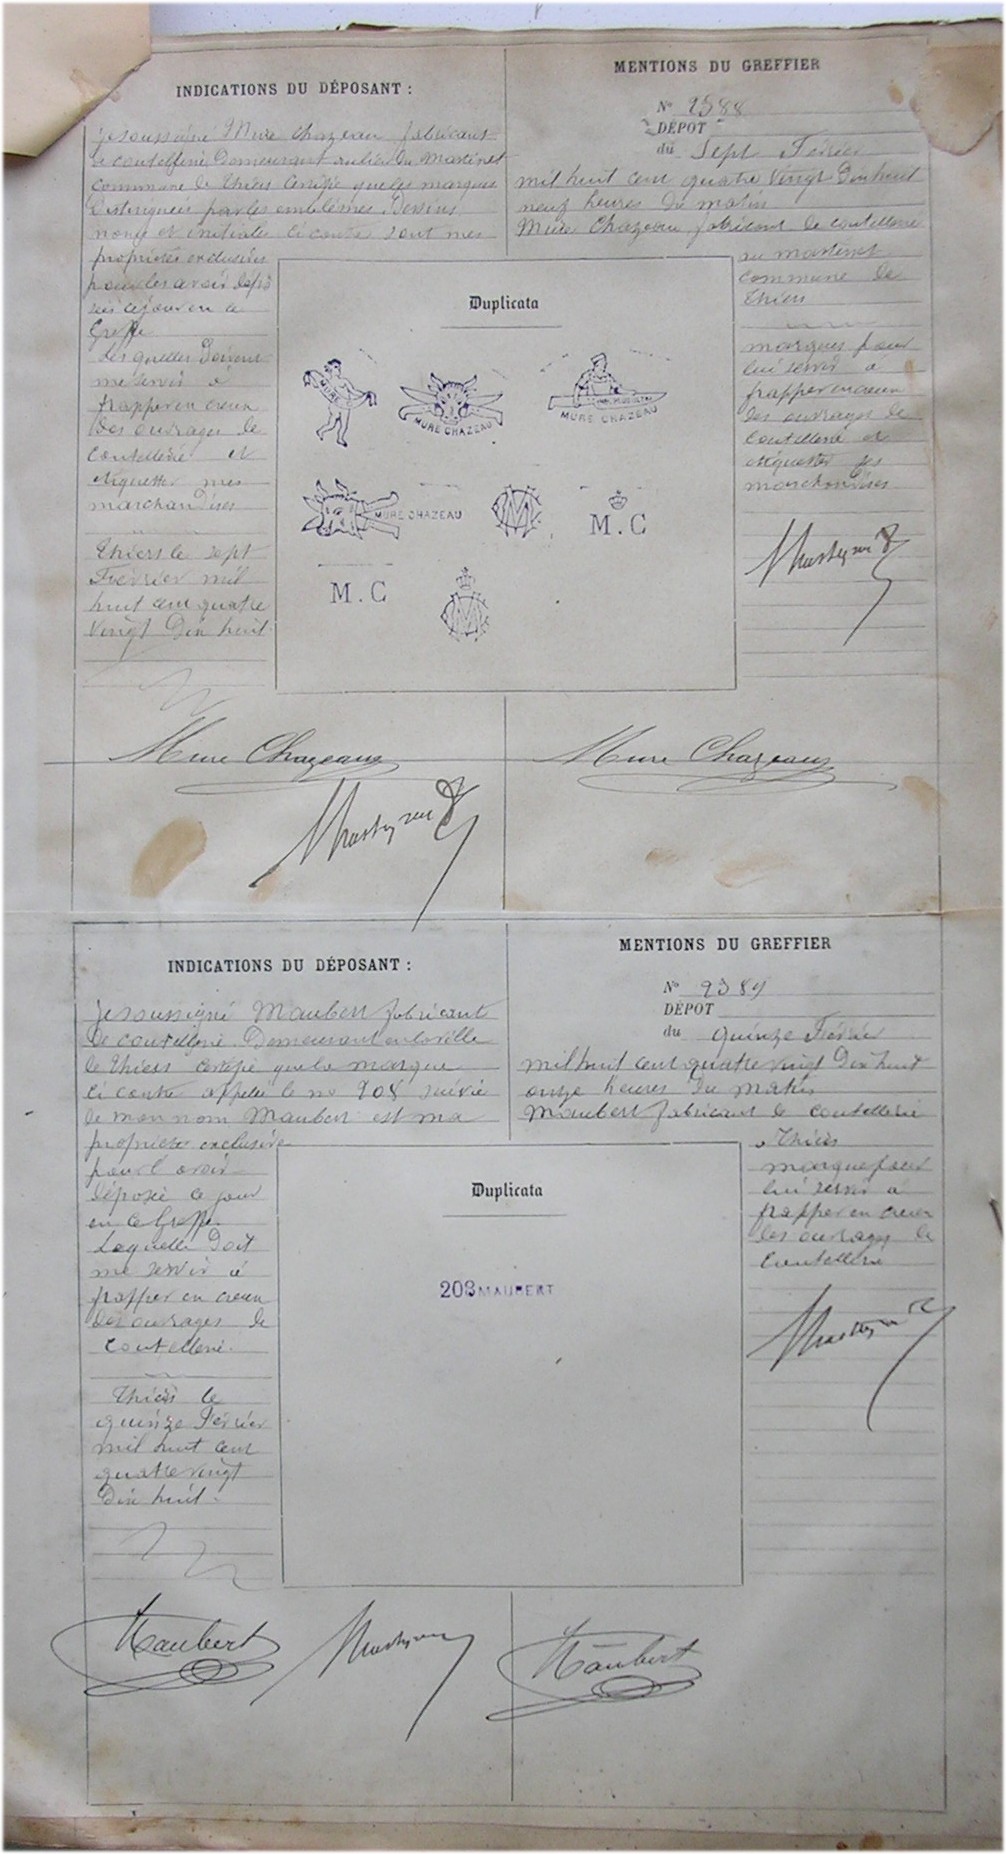 INDICATIONS DU DÉPOSANT :
Je soussigné Mure Chazeau fabricant
de coutellerie Demeurant au lieu du Martinet
commune de Thiers certifie que les marques
Distinguées par les emblèmes, Dessins
noms et initiales ci contre sont mes
propriétés exclusives
pour les avoir dépo
sées ce jour en ce
Greffe
Lesquelles Doivent
me servir à
frapper en creux
Des ouvrages de
Coutellerie et
étiquetter mes
marchandises
Thiers le sept
Février mil
huit cent quatre
vingt Dix huit
MENTIONS DU GREFFIER
N° 2388
DÉPÔT
du Sept Février
mil huit cent quatre Vingt Dix huit
neuf heures du matin
Mure Chazeau fabricant de coutellerie
au martinet
commune de
Thiers
marques pour
lui servir à
frapper en creux
des ouvrages de
coutellerie et
étiquetter ses
marchandises
Duplicata
MURE
MURE CHAZEAU
MURE CHAZEAU
MURE CHAZEAU
MC
M.C
M.C
MC
Mure Chazeau
Mure Chazeau
INDICATIONS DU DÉPOSANT :
Je soussigné Maubert fabricant
De coutellerie Demeurant en la ville
de Thiers certifie que la marque
Ci contre appelée le no 208 suivie
de mon nom Maubert est ma
propriété exclusive
pour l'avoir
Déposée ce jour
en ce Greffe
Laquelle Doit
me servir à
frapper en creux
Des ouvrages de
Coutellerie.
Thiers le
quinze Février
mil huit cent
quatre vingt
Dix huit.
MENTIONS DU GREFFIER
N° 2389
DÉPÔT
du quinze Février
mil huit cent quatre vingt Dix huit
onze heures du matin
Maubert fabricant de coutellerie
Thiers
marque pour
lui servir à
frapper en creux
des ouvrages de
Coutellerie
Duplicata
208 MAUBERT
Maubert
Maubert